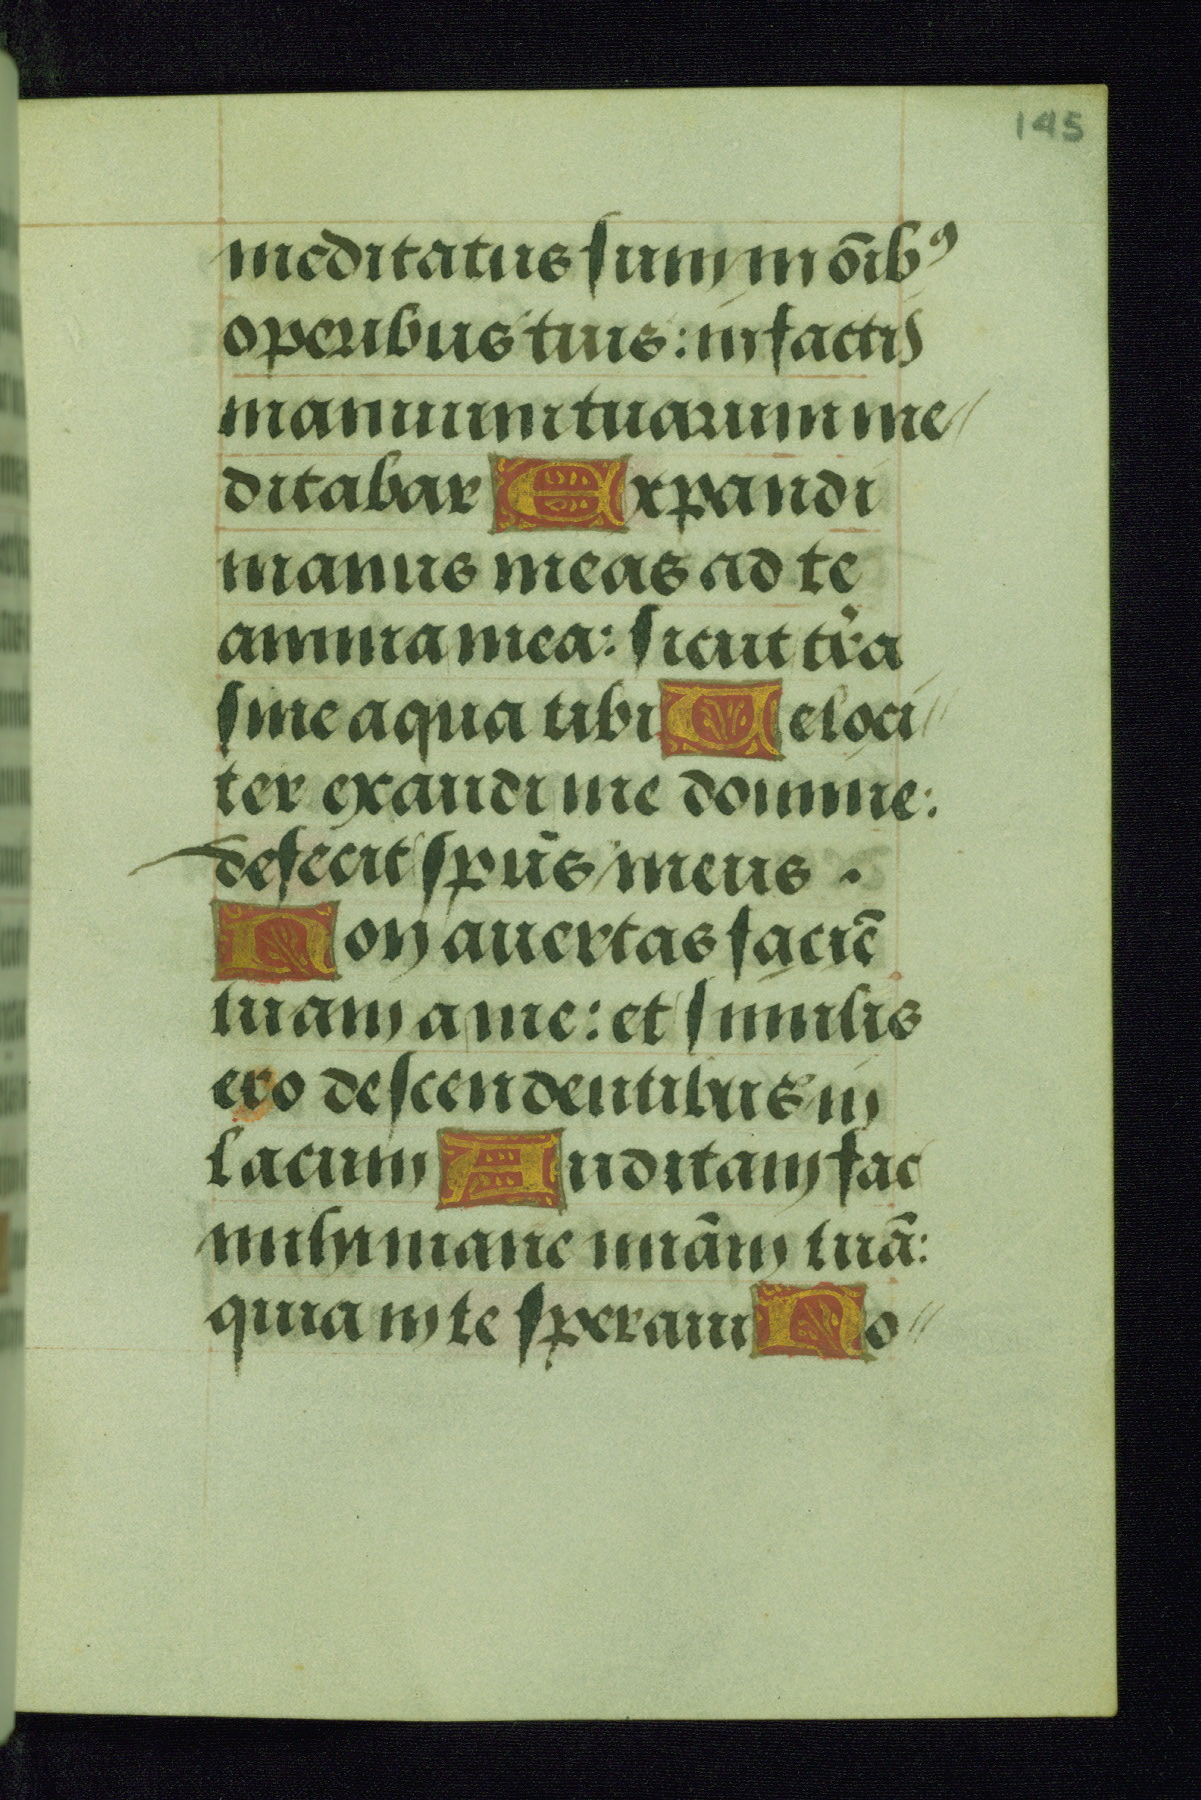 145
meditatus sum in o̅ib⁹
operibus tuis: in factis
manuum tuarum me//
ditabar Expandi
manus meas ad te
anima mea: sicut tr̃a
sine aqua tibi Veloci//
ter exaudi me domine:
defecit spūs meus .
Non avertas faciē
tuam a me: et similis
ero descendentibus in
lacum Auditam fac
mihi mane miām tuā:
quia in te speravi No//